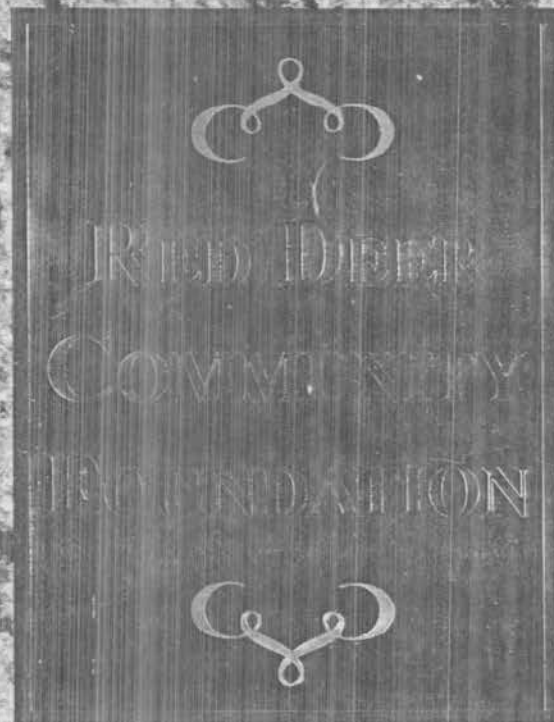 RED DEER
COMMUNITY
FOUNDATION